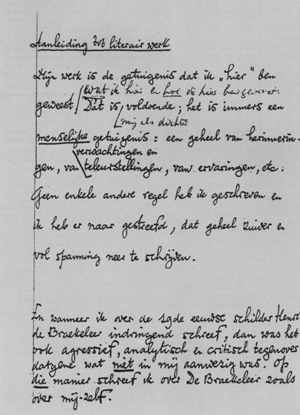 Aanleiding tot literair werk
Mijn werk is de getuigenis dat ik „hier" ben
wat ik hier en hoe ik hier ben geweest.
geweest / Dàt is voldoende; het is immers een
mij als dichter
menselijke getuigenis: een geheel van herinnerin-
verwachtingen en
gen, van teleurstellingen, van ervaringen, etc.
Geen enkele andere regel heb ik geschreven en
ik heb er naar gestreefd, dat geheel zuiver en
vol spanning neer te schrijven.
En wanneer ik over de 19de eeuwse schilder Henri
de Braekeleer indringend schreef, dan was het
ook agressief, analytisch en critisch tegenover
datgene wat niet in mij aanwezig was. Op
die manier schreef ik over De Braekeleer zoals
over mij-zelf.